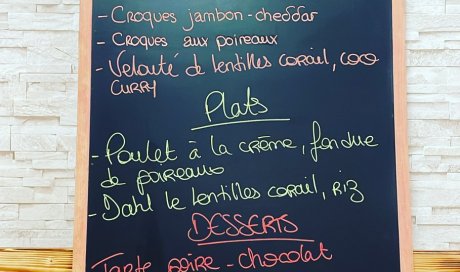 - Croques jambon-cheddar
- Croques aux poireaux
- Velouté de lentilles corail, coco
curry
Plats
- Poulet à la crème, fondue
de poireaux
- Dahl le lentilles corail, riz
DESSERTS
Tarte poire - chocolat